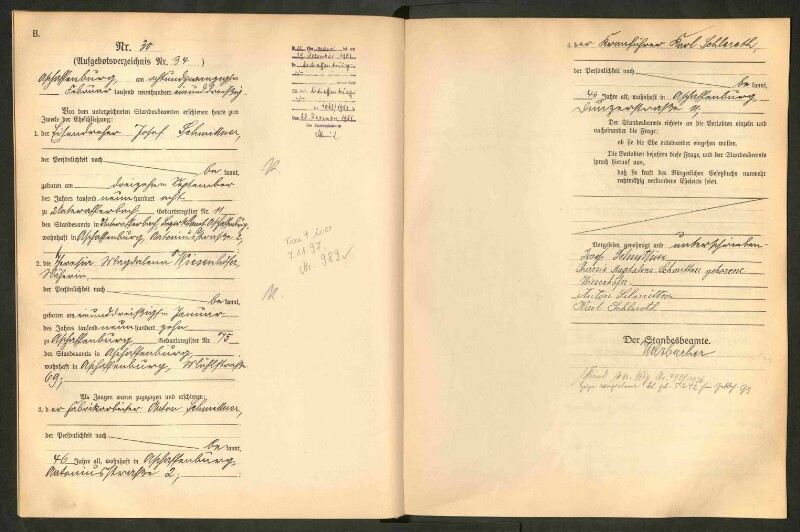 B.
Nr. 30
(Aufgebotsverzeichnis Nr. 34)
Aschaffenburg, am achtundzwanzigsten
Februar tausend neunhundert neununddreißig.
Vor dem unterzeichneten Standesbeamten erschienen heute zum
Zwecke der Eheschließung:
1. der Eisendreher Josef Schmittner,
der Persönlichkeit nach
bekannt,
geboren am dreizehnten September
des Jahres tausend neunhundert acht
zu Unterafferbach, Geburtsregister Nr. 11
des Standesamts in Unterafferbach, Bezirksamt Aschaffenburg,
wohnhaft in Aschaffenburg, Antoniusstraße 2,
2. die Theresia Magdalena Wiesenhöfer,
Näherin
der Persönlichkeit nach
bekannt,
geboren am einunddreißigsten Januar
des Jahres tausend neunhundert zehn
zu Aschaffenburg, Geburtsregister Nr. 75
des Standesamts in Aschaffenburg,
wohnhaft in Aschaffenburg, Mühlstraße
69;
Als Zeugen waren zugezogen und erschienen:
3. der Fabrikarbeiter Anton Schmittner,
der Persönlichkeit nach
bekannt,
46 Jahre alt, wohnhaft in Aschaffenburg,
Antoniusstraße 2;
Dezember 1981
Aschaffenburg
Dezember 1981
7.11.97,
Nr. 989
4. der Kranführer Karl Schleroth,
der Persönlichkeit nach
bekannt,
46 Jahre alt, wohnhaft in Aschaffenburg,
Der Standesbeamte richtete an die Verlobten einzeln und
nacheinander die Frage:
ob sie die Ehe miteinander eingehen wollen.
Die Verlobten bejahten diese Frage, und der Standesbeamte
sprach hierauf aus,
daß sie kraft des Bürgerlichen Gesetzbuchs nunmehr
rechtmäßig verbundene Eheleute seien.
Vorgelesen, genehmigt und unterschrieben
Josef Schmittner
Theresia Magdalena Schmittner geborene
Wiesenhöfer
Anton Schmittner
Karl Schleroth
Der Standesbeamte.